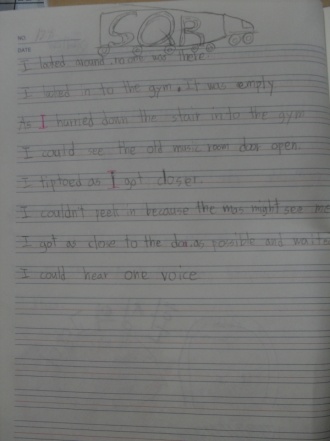 NO.
SQR
DATE
I looked around no one was there.
I looked in to the gym. It was empty
As I hurried down the stair in to the gym
I could see the old music room door open.
I tiptoed as I got closer.
I couldn't peek in because the might see me
I got as close to the door as possible and waited
I could hear one voice